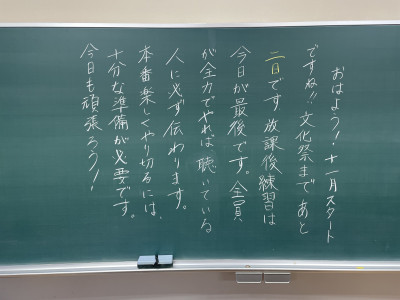 おはよう！十一月スタート
ですね!!文化祭まであと
二日です。放課後練習は
今日が最後です。全員
が全力でやれば聴いている
人に必ず伝わります。
本番楽しくやり切るには、
十分な準備が必要です。
今日も頑張ろう！